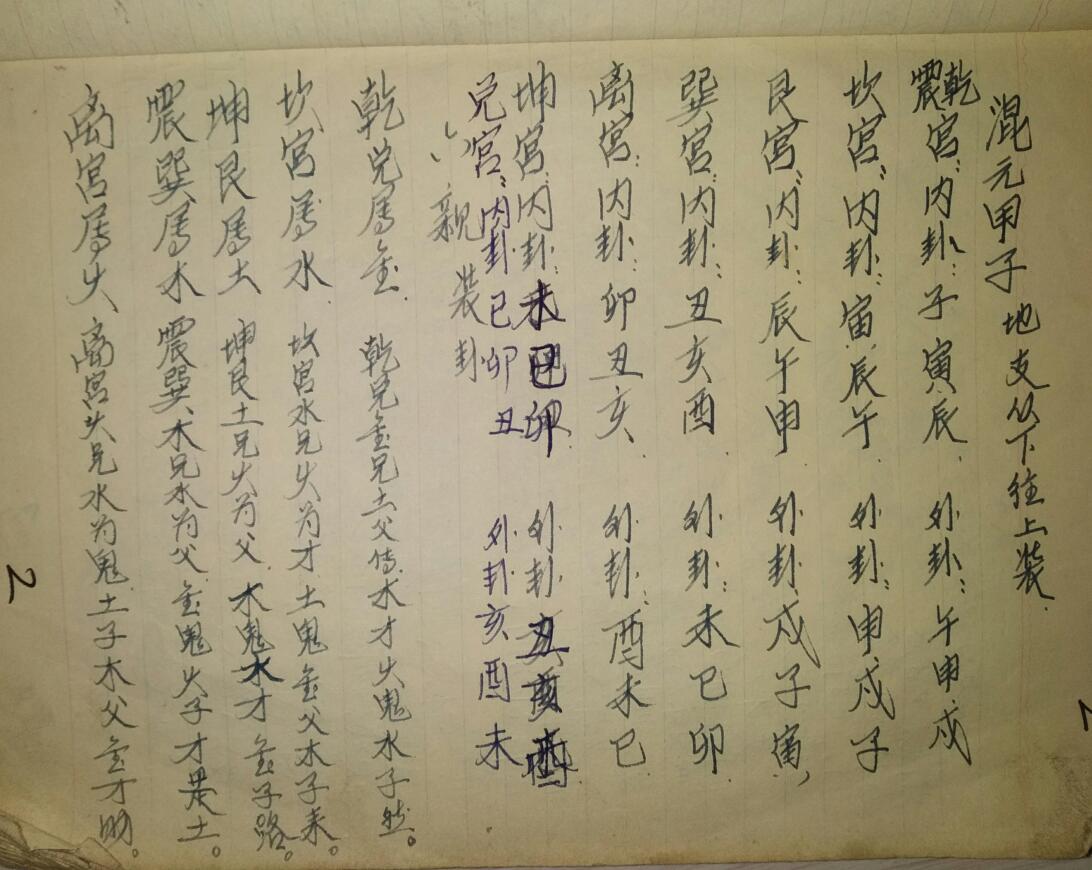 混元甲子地支从下往上装.
震乾宫:内卦:子寅辰. 外卦:午申戍
坎宫:内卦:寅.辰午. 外卦:申戍子
艮宫:内卦:辰午申. 外卦:戍子寅,
巽宫:内卦:丑亥酉 外卦:未巳卯.
离宫:内卦:卯丑亥. 外卦:酉未巳.
坤宫:内卦:未巳卯. 外卦丑亥酉
兑宫:内卦巳卯丑 外卦亥酉未
六亲装卦
乾兑属金. 乾兑金兄土父传.木才火鬼水子然。
坎宫属水. 坎宫水兄火为才土鬼金父木子来。
坤艮属土 坤艮土兄火为父.木鬼水才金子路。
震巽属木 震巽木兄水为父.金鬼火子才是土。
离宫属火 离宫火兄水为鬼.土子木父金才助。
2